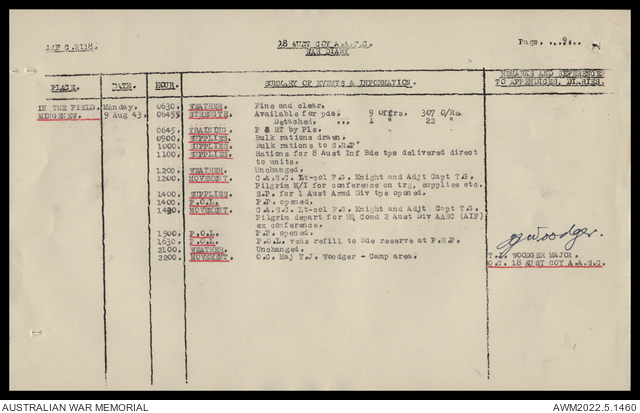 AAF C.2118.
18 AUST COY A.A.S.C.
WAR DIARY
Page. ...9..
PLACE. DATE. HOUR. SUMMARY OF EVENTS & INFORMATION. REMARKS AND REFERENCE
TO APPENDICES, DIARIES.
IN THE FIELD. Monday. 0630. WEATHER. Fine and clear.
MINGENEW. 9 Aug 43. 0645 STRENGTH. Available for pde. 9 Offrs. 307 O/Rs
Detached. ... 1 " 22 "
0645. TRAINING. P & RT by Pls.
0900. SUPPLIES. Bulk rations drawn.
1000. SUPPLIES. Bulk rations to S.R.P
1100. SUPPLIES. Rations for 8 Aust Inf Bde tps delivered direct
to units.
1200. WEATHER. Unchanged.
1200. MOVEMENT. C.A.S.C. Lt-col F.G. Knight and Adjt Capt T.G.
Pilgrim M/I for conference on trg, supplies etc.
1400. SUPPLIES. S.P. for 1 Aust Armd Div tps opened.
1400. P.O.L. P.P. opened.
1430. MOVEMENT. C.A.S.C. Lt-col F.G. Knight and Adjt. Capt T.G.
Pilgrim depart for HQ Comd 2 Aust Div AASC (AIF)
ex conference.
1500. P.O.L. P.P. opened.
1630. P.O.L. P.O.L. vehs refill to Bde reserve at P.R.P.
2100. WEATHER. Unchanged.
2200. MOVEMENT. O.C. Maj T.J. Woodger - Camp area.
Woodger.
T.J. WOODGER MAJOR.
O.C. 18 AUST COY A.A.S.C.
AUSTRALIAN WAR MEMORIAL
AWM2022.5.1460